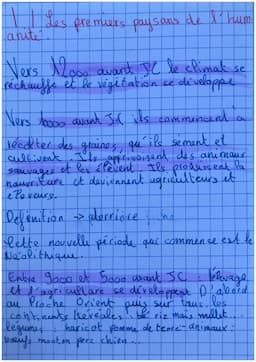 I. / Les premiers paysans de l'hum
anité
Vers 12000 avant JC le climat se
réchauffe et la végétation se développe
Vers 1000 avant JC ils commencent a
récolter des graines, qu'ils sèment et
cultivent. Ils apprivoisent des animaux
sauvages et les élèvent. Ils produisent la
nourriture et deviennent agriculteurs et
éleveurs.
Definition ->
Cette nouvelle période qui commence est le
Néolithique.
Entre 9000 et 5000 avant JC : l'élevage
et l'agriculture se développent D'abord
au Proche Orient puis sur tous les
continents (céréales: riz mais millet...
legumes: haricot pomme de terre animaux:
bœufs mouton porc chien...